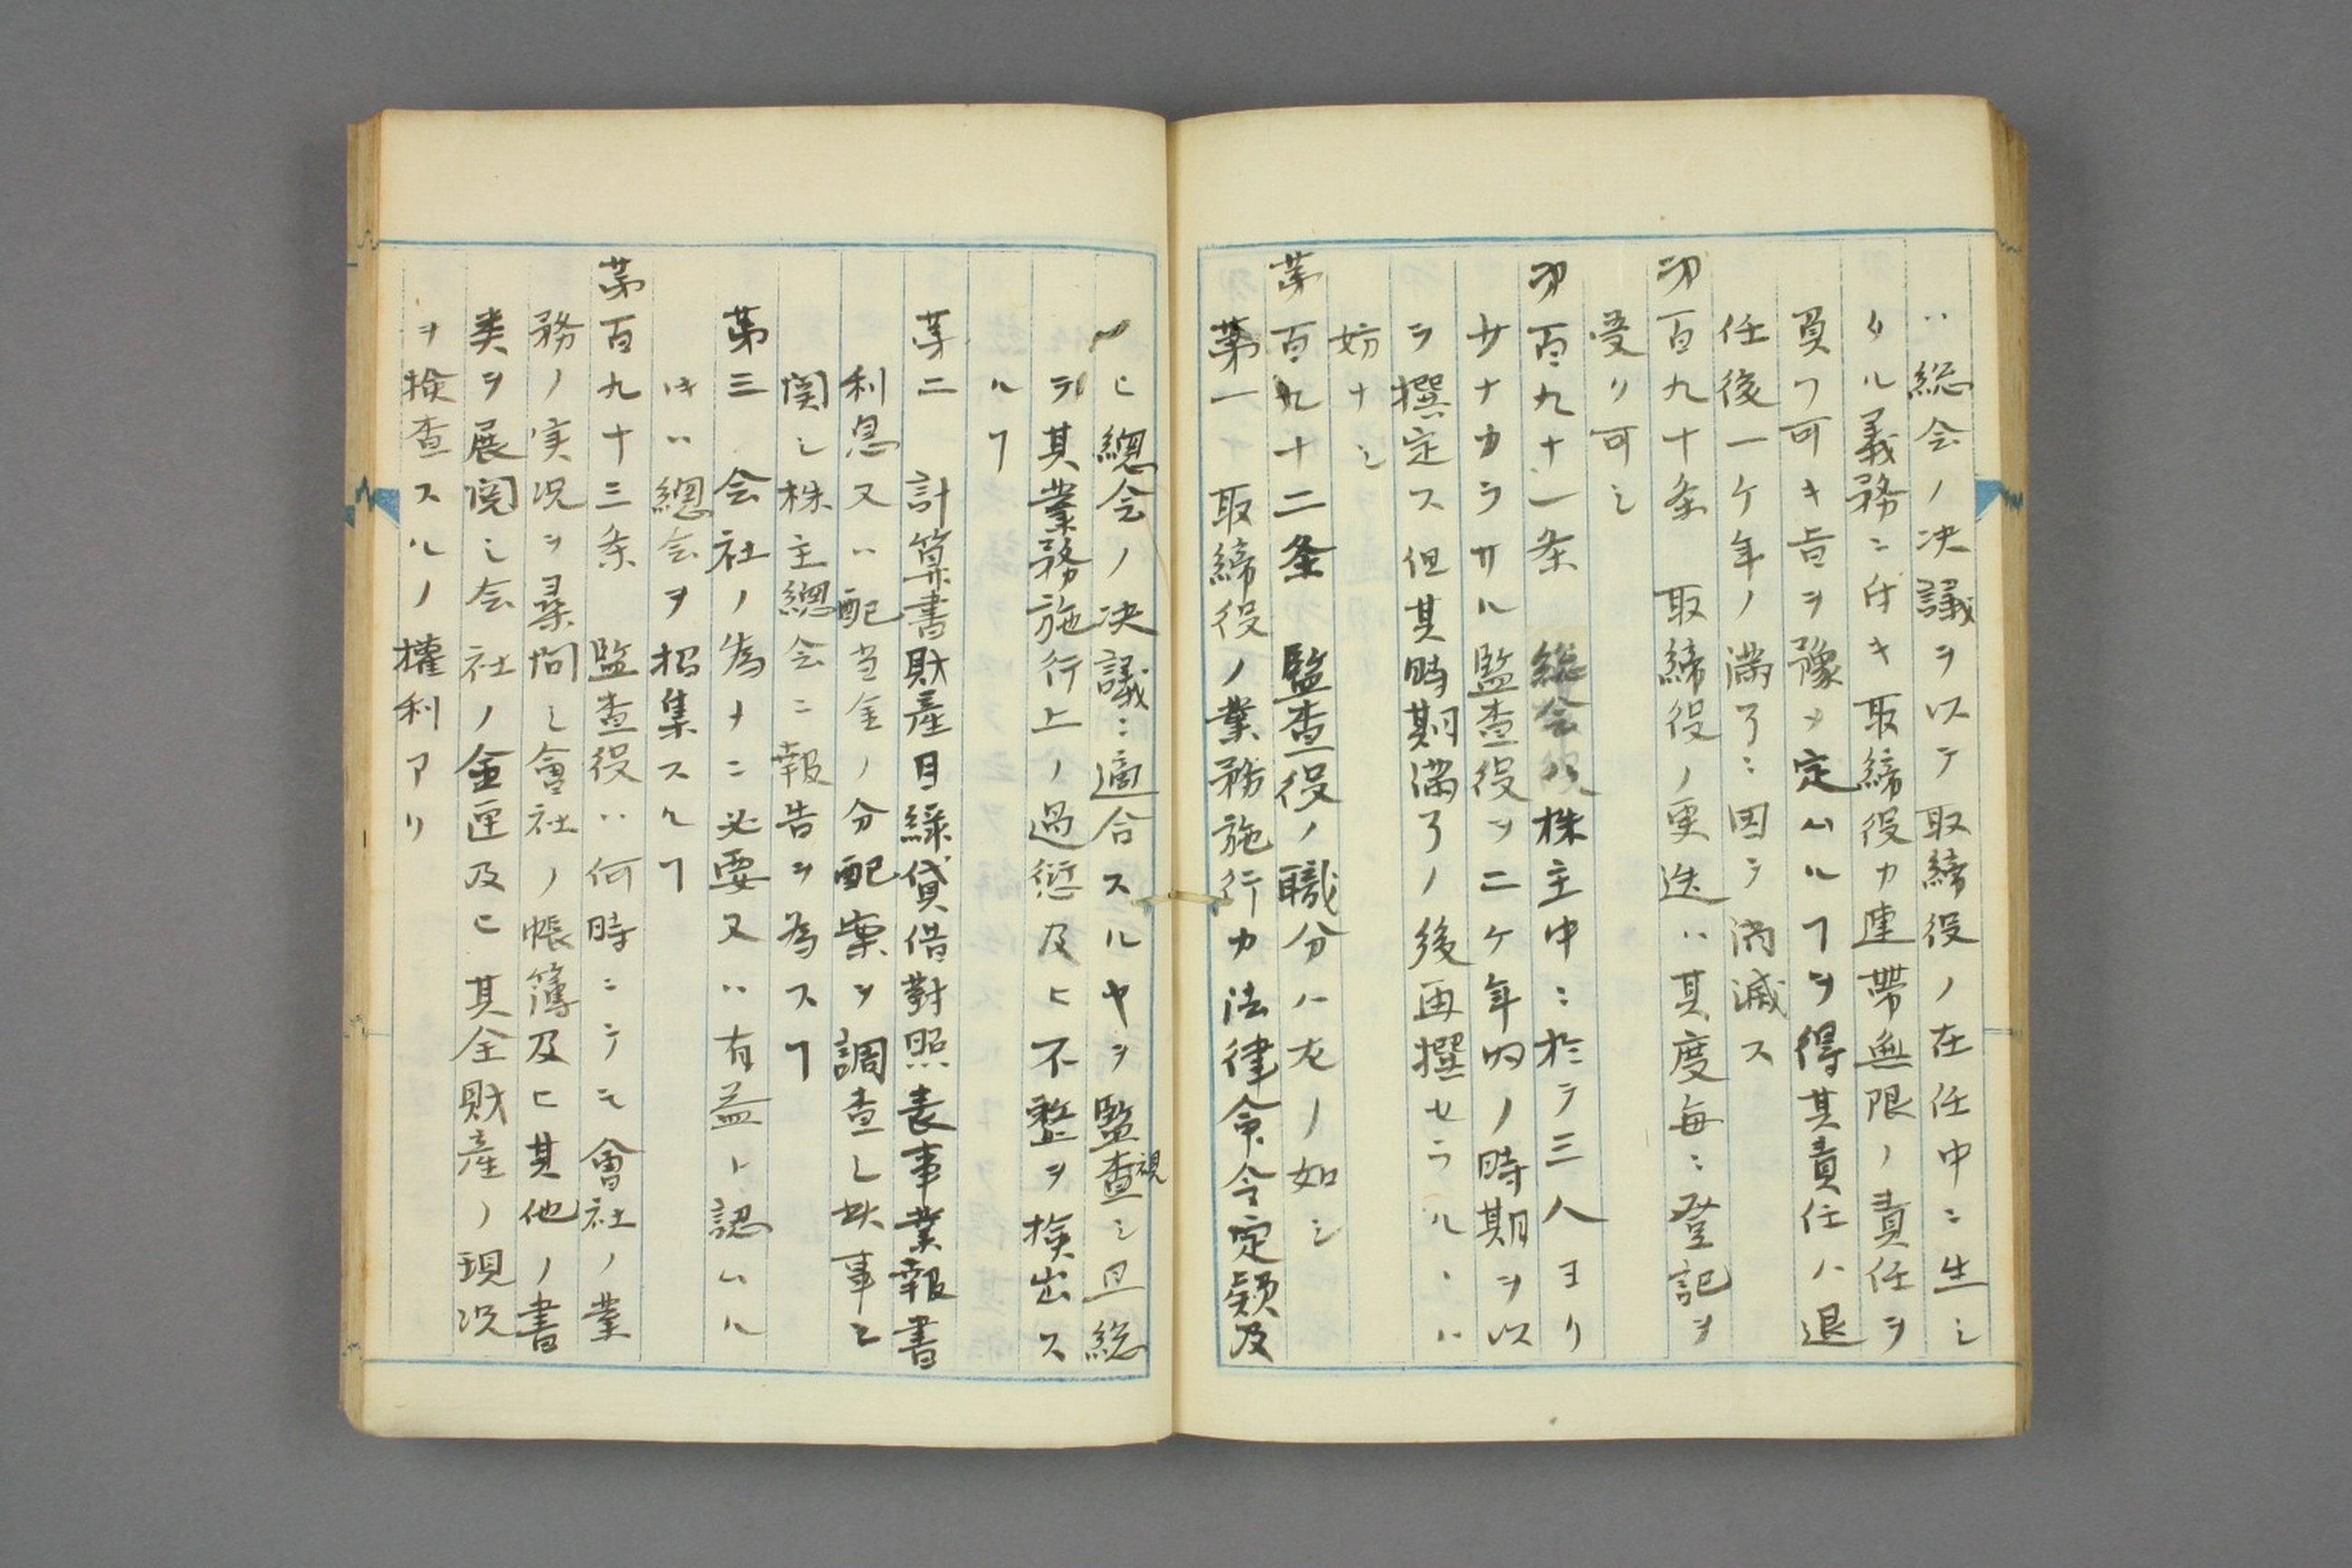 ハ総会ノ决議ヲ以テ取締役ノ在任中ニ生シ
タル義務ニ付キ取締役カ連帯無限ノ責任ヲ
負フ可キ旨ヲ豫メ定ムルヿヲ得其責任ハ退
任後一ケ年ノ満了ニ因テ消滅ス
第百九十条　取締役ノ更迭ハ其度毎ニ登記ヲ
受リ可シ
第百九十一条　総会ハ株主中ニ於テ三人ヨリ
少ナカラサル監査役ヲ二ケ年内ノ時期ヲ以
テ撰定ス但其時期満了ノ後再撰セラルヽハ
妨ナシ
第百九十二条　監査役ノ職分ハ左ノ如シ
第一　取締役ノ業務施行カ法律命令定款及
ヒ總会ノ决議ニ適合スルヤヲ監査視シ且総
テ其業務施行上ノ過愆及ヒ不整ヲ検出ス
ルヿ
第二　計算書財産目録貸借對照表事業報書
利息又ハ配当金ノ分配案ヲ調査シ此事ニ
関シ株主總会ニ報告ヲ為スヿ
第三　会社ノ為メニ必要又ハ有益ト認ムル
時ハ總会ヲ招集スルヿ
第百九十三条　監査役ハ何時ニテモ會社ノ業
務ノ実况ヲ尋問シ會社ノ帳簿及ヒ其他ノ書
类ヲ展閲シ会社ノ金匣及ヒ其全財産ノ現况
ヲ検査スルノ權利アリ